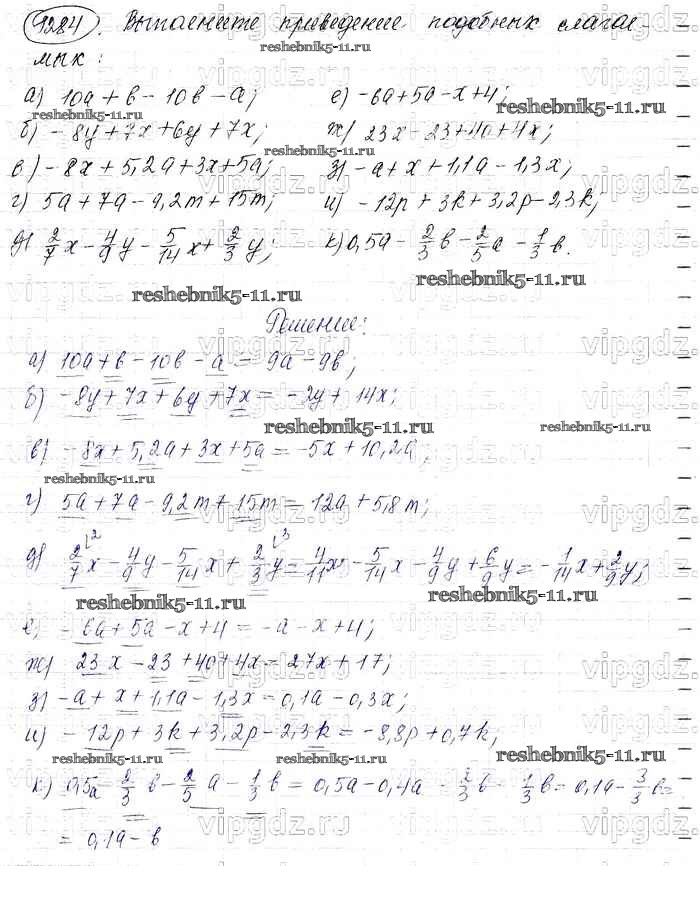 1284. Выполните приведение подобных слагае-
мых:
а) 10a + b - 10b - a; е) -6a + 5a - x + 4;
б) -8y + 7x + 6y + 7x; ж) 23x - 23 + 40 + 4x;
в) -8x + 5,2a + 3x + 5a; з) -a + x + 1,1a - 1,3x;
г) 5a + 7a - 9,2m + 15m; и) -12p + 3k + 3,2p - 2,3k;
д) 2/7 x - 4/9 y - 5/14 x + 2/3 y; к) 0,5a - 2/3 b - 2/5 a - 1/3 b.
reshebnik5-11.ru
Решение:
а) 10a + b - 10b - a = 9a - 9b;
б) -8y + 7x + 6y + 7x = -2y + 14x;
reshebnik5-11.ru reshebnik5-11.ru
в) -8x + 5,2a + 3x + 5a = -5x + 10,2a;
reshebnik5-11.ru
г) 5a + 7a - 9,2m + 15m = 12a + 5,8m;
д) 2/7 x - 4/9 y - 5/14 x + 2/3 y = 4/11 x - 5/14 x - 4/9 y + 6/9 y = -1/14 x + 2/9 y;
reshebnik5-11.ru reshebnik5-11.ru
е) -6a + 5a - x + 4 = -a - x + 4;
ж) 23x - 23 + 40 + 4x = 27x + 17;
з) -a + x + 1,1a - 1,3x = 0,1a - 0,3x;
и) -12p + 3k + 3,2p - 2,3k = -8,8p + 0,7k;
reshebnik5-11.ru reshebnik5-11.ru
к) 0,5a - 2/3 b - 2/5 a - 1/3 b = 0,5a - 0,4a - 2/3 b - 1/3 b = 0,1a - 3/3 b =
= 0,1a - b
vipgdz.ru
reshebnik5-11.ru